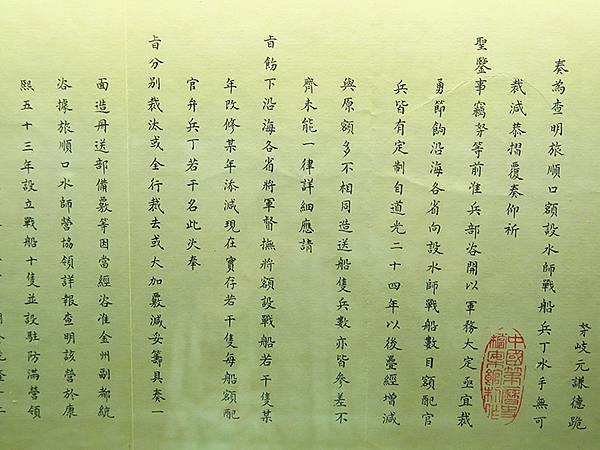 岐元謙德跪
奏為查明旅順口額設水師戰船兵丁水手無可
裁減恭摺覆奏仰祈
聖鑒事竊奴等前准兵部咨開以軍務大定亟宜裁
勇節餉沿海各省向設水師戰船數目額配官
兵皆有定制自道光二十四年以後疊經增減
與原額多不相同造送船隻兵數亦皆參差不
齊未能一律詳細應請
旨飭下沿海各省將軍督撫將額設戰船若干隻某
年改修某年添減現在實存若干隻每船額配
官弁兵丁若干名此次奉
旨分別裁汰或全行裁去或大加覈減妥籌具奏一
面造冊送部備覈等因當經咨准金州副都統
咨據旅順口水師營協領詳報查明該營於康
熙五十三年設立戰船十隻並設駐防滿營領
中國第一歷史
檔案館製作